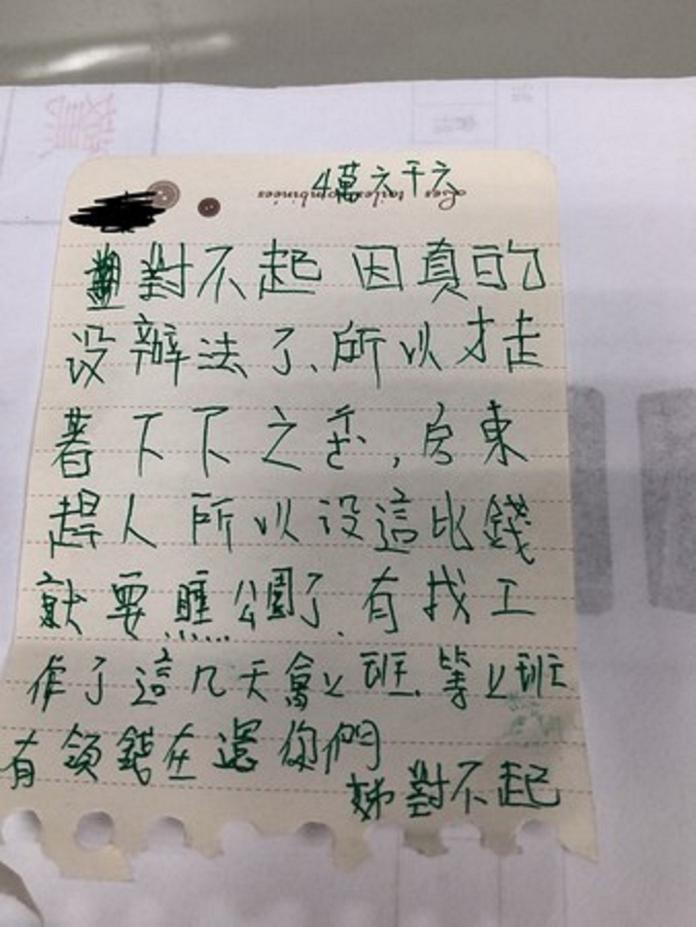 4萬六千六
對不起 因真的
没辦法了、所以才走
著下下之,房東
趕人 所以没這比錢
就要睡公園了.有找工
作了這几天會上班.等上班
有領錢在還你們
姊對不起